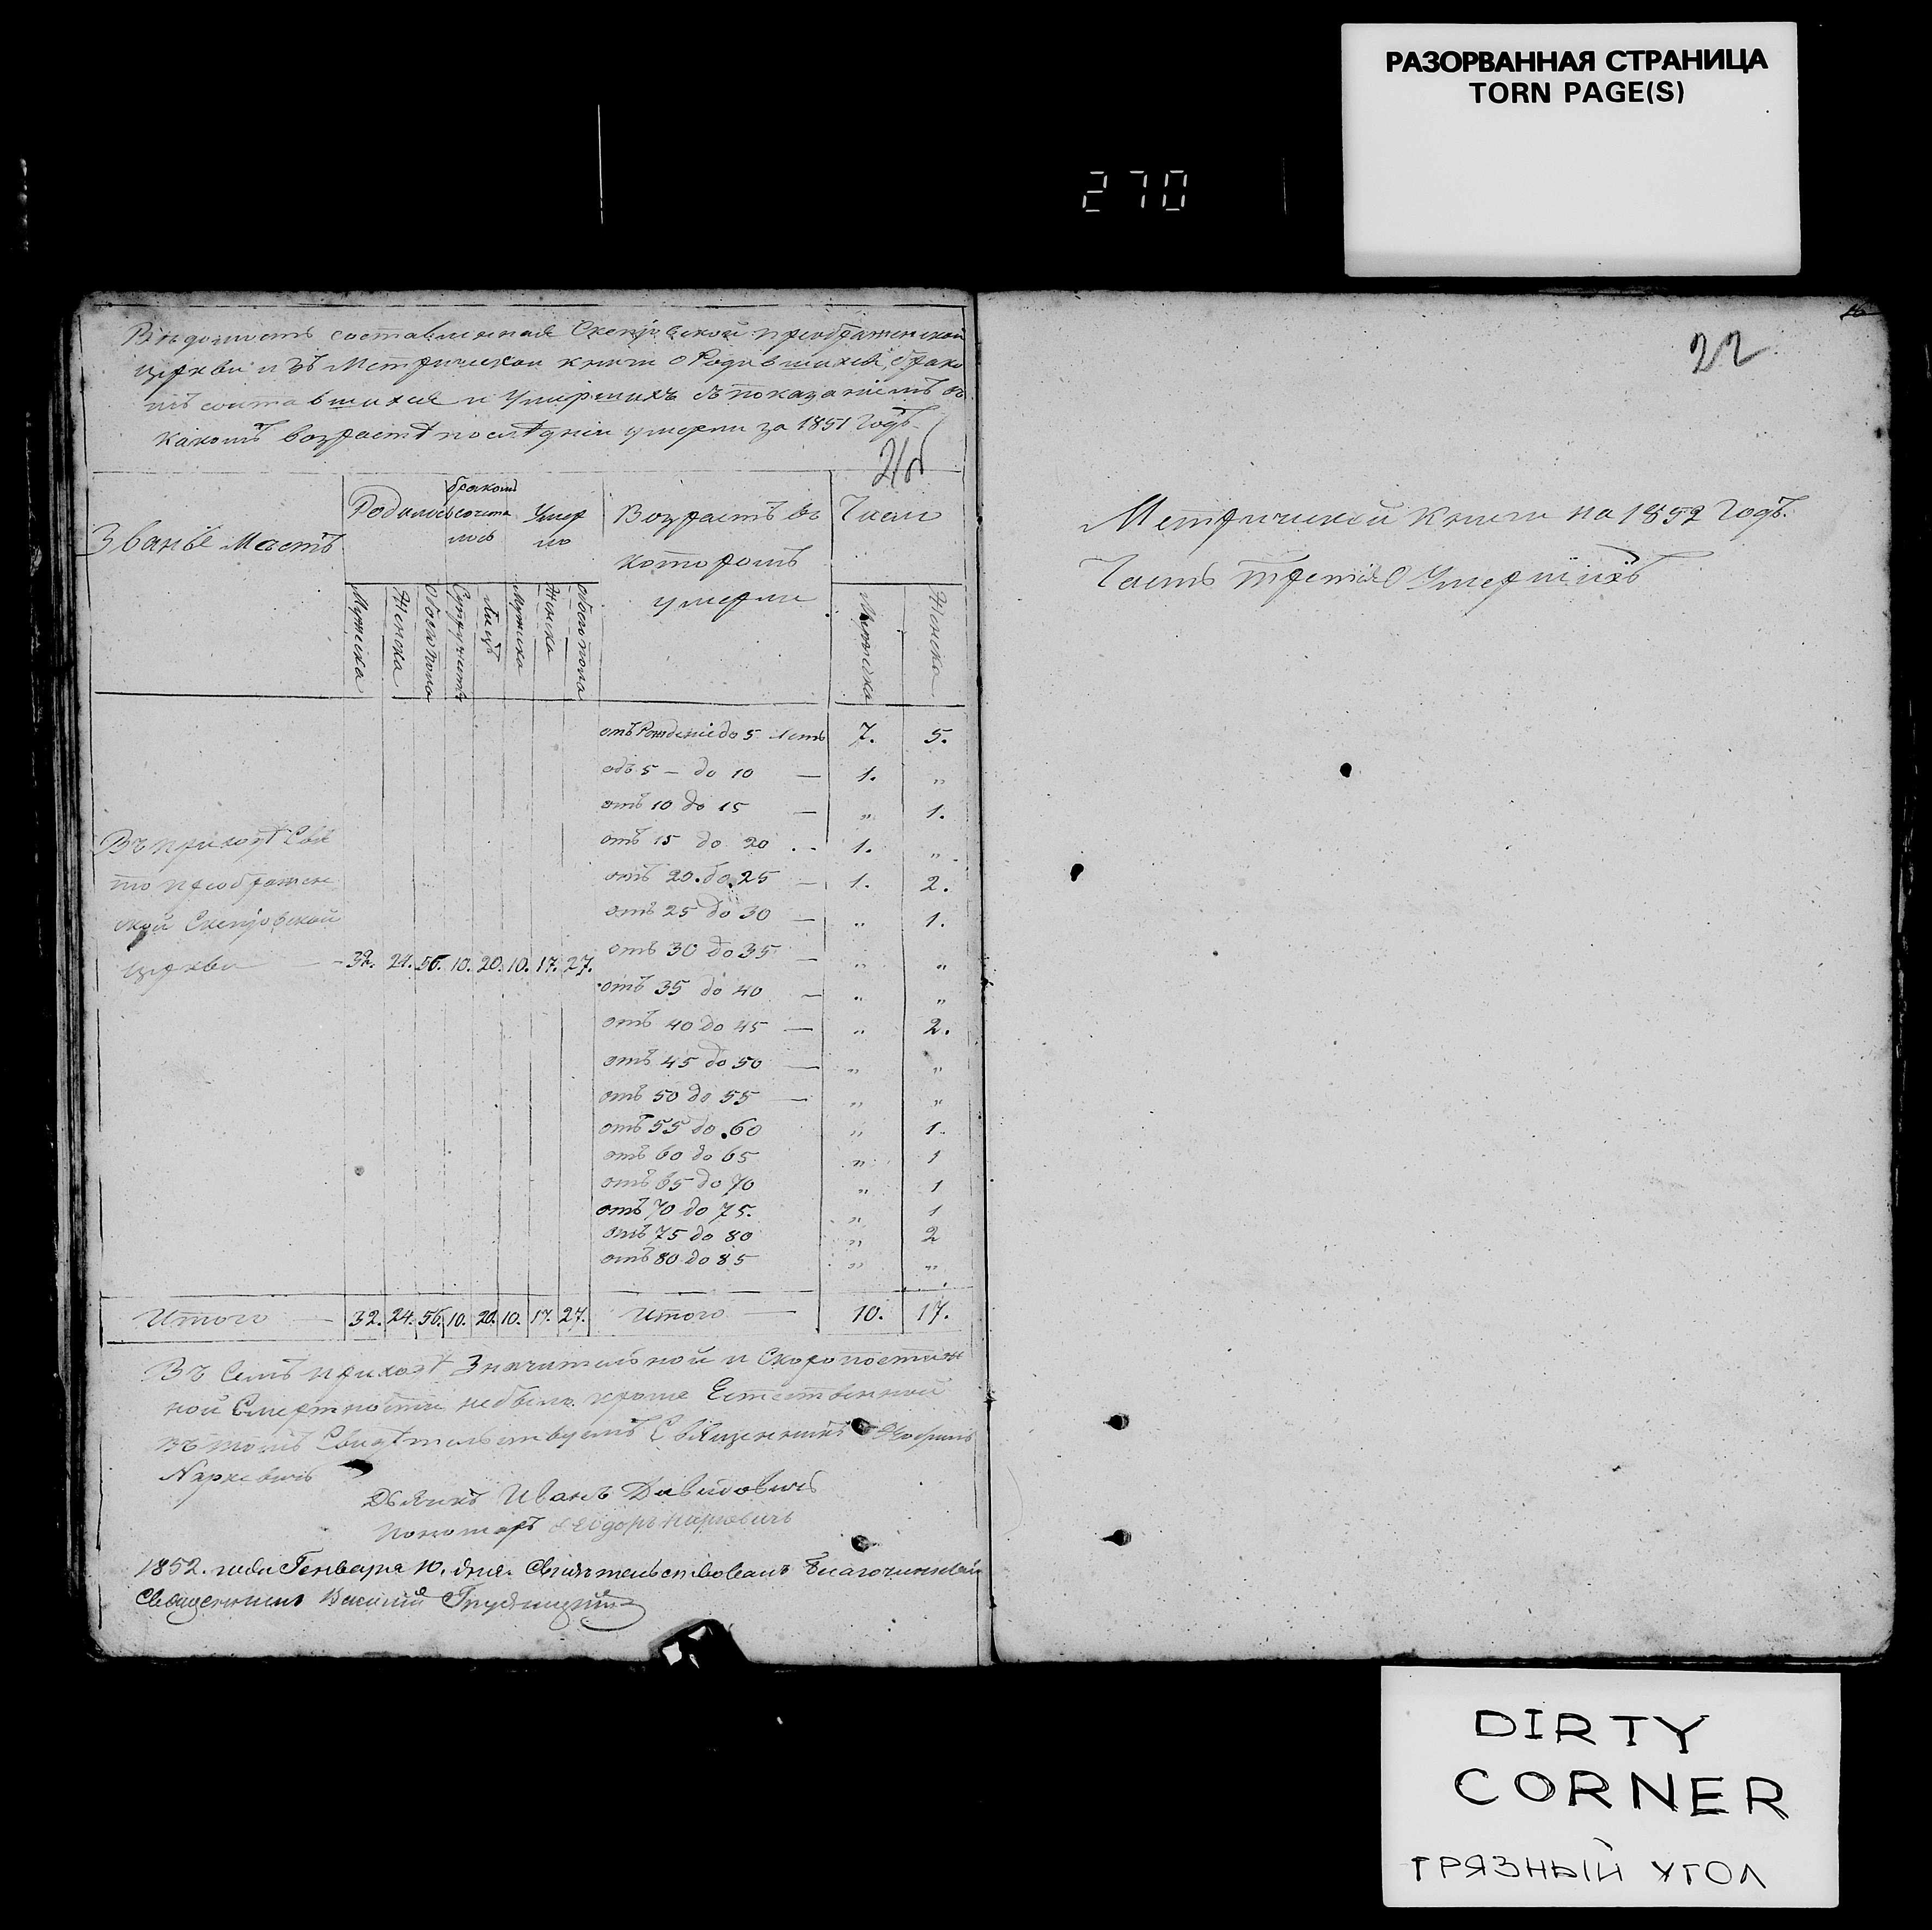 РАЗОРВАННАЯ СТРАНИЦА
TORN PAGE(S)
270
Ведомость составленная преображенской
церкви изъ Метрической книги о Родившихся, брако
мъ составшихся и Умершихъ съ показаніемъ въ
какомъ возрастѣ послѣдніи умерли за 1851 годъ
21об
Званіе Мѣстъ
Родилось
бракомъ сочета лось
Умер ло
Возрастъ въ которомъ умерли
Число
Мужска
Женска
Обоего пола
Супружествъ
Лицъ
Мужска
Женска
обоего пола
Мужска
Женска
отъ Рожденіе до 5 летъ 7. 5.
отъ 5 — до 10 — 1. „
отъ 10 до 15 — „ 1.
отъ 15 до 20 . - 1. „
отъ 20. до 25 — 1. 2.
отъ 25 до 30 — „ 1.
отъ 30 до 35 — „ „
отъ 35 до 40 — „ „
отъ 40 до 45 — „ 2.
отъ 45 до 50 — „ „
отъ 50 до 55 — „ „
отъ 55 до 60 „ 1.
отъ 60 до 65 „ 1
отъ 65 до 70 „ 1
отъ 70 до 75. „ 1
отъ 75 до 80 „ 2
отъ 80 до 85 „ „
Въ приходѣ Свя
то преображен
ской
церкви — 32. 24. 56. 10. 20. 10. 17. 27.
Итого — 32. 24. 56. 10. 20. 10. 17. 27. Итого — 10. 17.
Въ Семъ приходѣ Значительной и Скоропостиж
ной Смертности небыло кроме Естественной
въ томъ Свидѣтельствуетъ Священникъ
Наркевичъ
Дьячокъ Иванъ Давидовичъ
Пономарь Ѳеодоръ Наркевичъ
1852. года Генваря 10. дня. Свидѣтельствовалъ Благочинный
Священникъ Василій
16
22
Метрической Книги на 1852 Годъ.
Часть третія О Умершихъ
DIRTY
CORNER
ГРЯЗНЫЙ УГОЛ